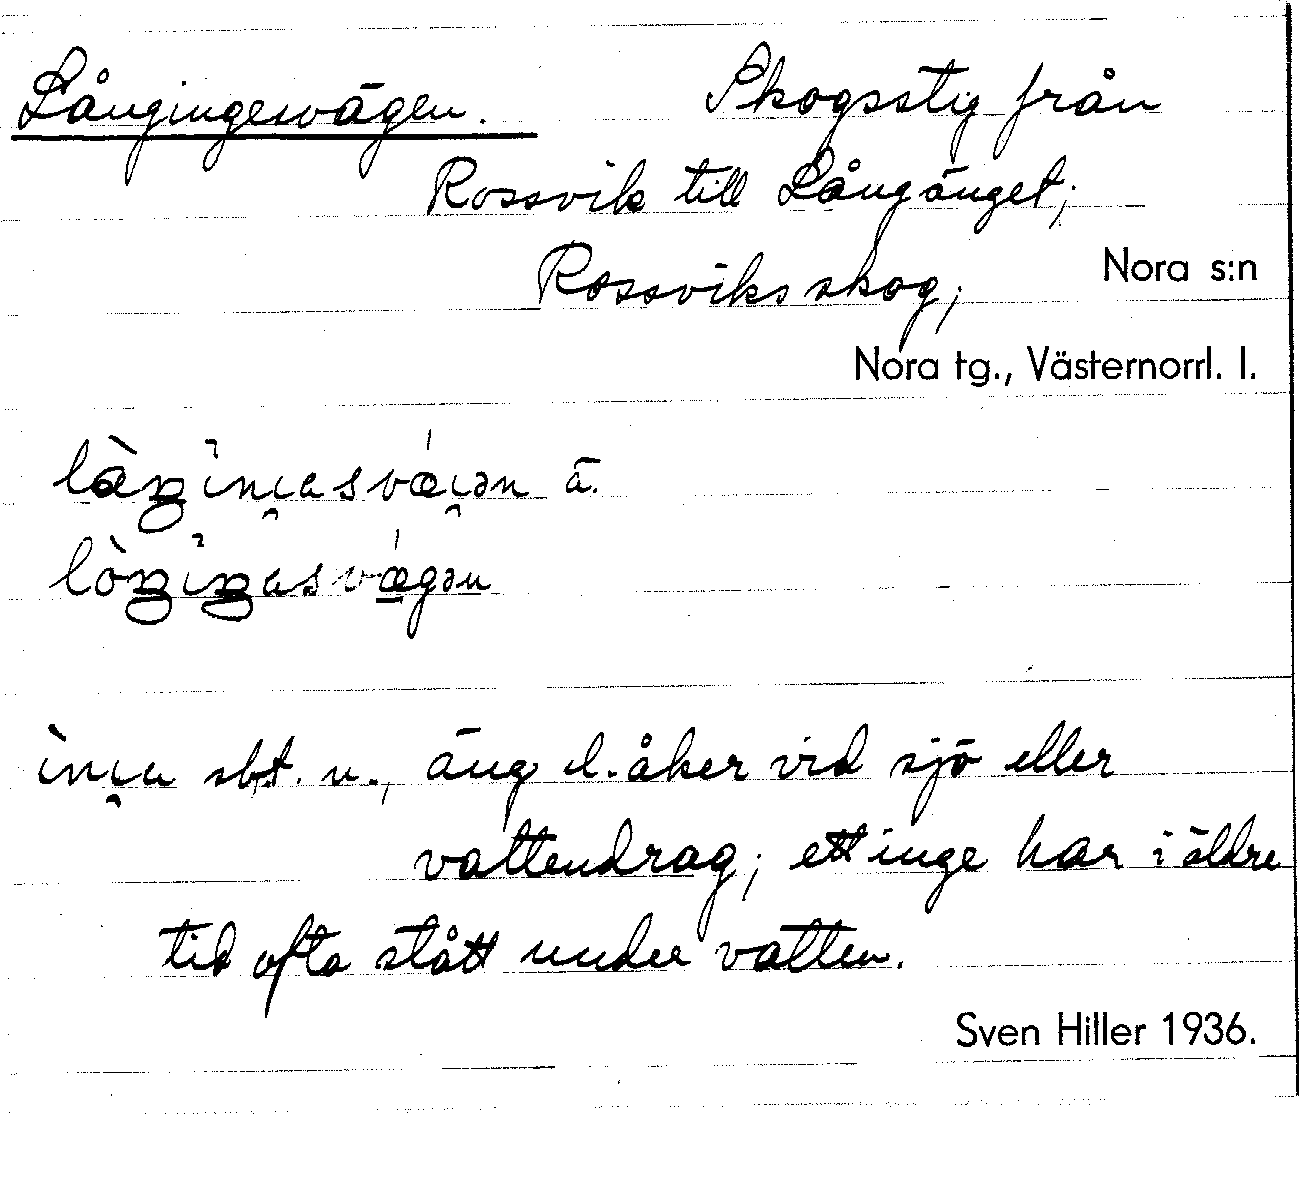 Långingesvägen. Skogsstig från
Rossvik till Långänget;
Rossviks skog; Nora s:n
Nora tg., Västernorrl. l.
ä.
sbt. n., äng l. åker vid sjö eller
vattendrag; ett inge har i äldre
tid ofta stått under vatten.
Sven Hiller 1936.